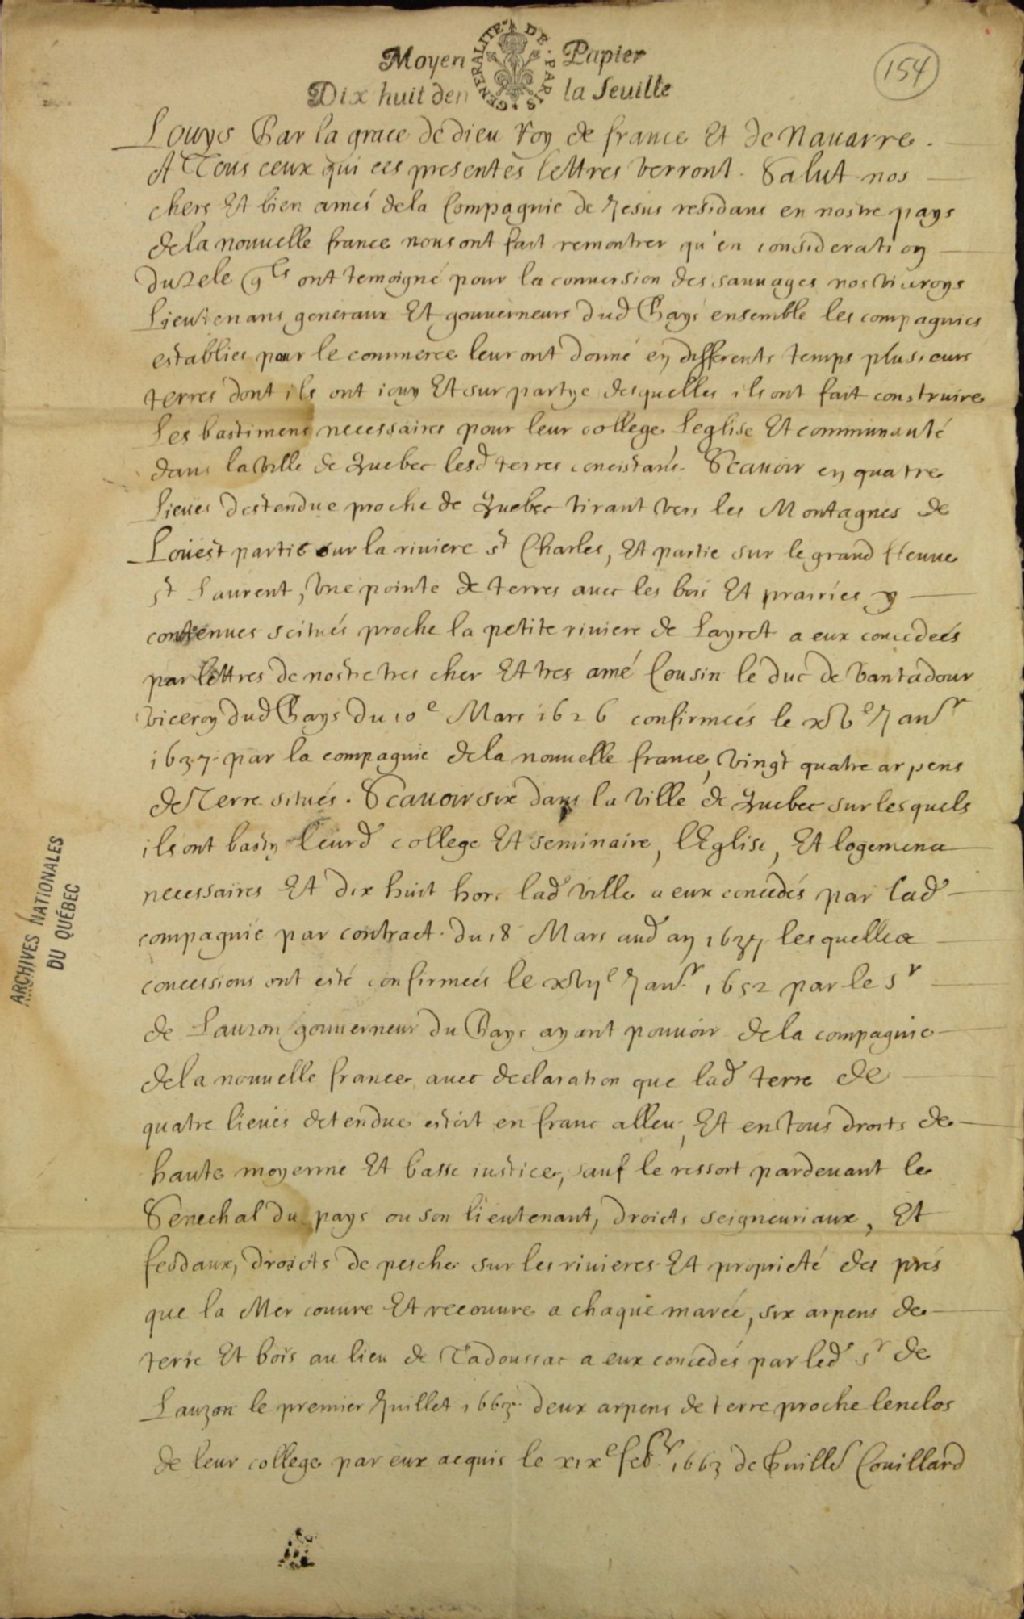 Moyen Papier
Dix huit den la feuille
GENERALITE DE PARIS
154
Louys Par la grace de dieu Roy de france Et de Nauarre.
A Tous ceux qui ces presentes lettres verront. Salut nos
chers Et bien amés dela Compagnie de Jesus residans en nostre pays
dela nouuelle france nous ont fait remontrer qu'en consideration
du zele qls ont temoigné pour la conuersion des sauuages nos viceroys
Lieutenans generaux Et gouuerneurs dud Pays ensemble les compagnies
establies pour le commerce leur ont donné en differents temps plusieurs
terres dont ils ont iouy Et sur partye desquelles ils ont fait construire
Les bastimens necessaires pour leur college Leglise Et communauté
dans la ville de Quebec lesd terres concistans. Scauoir en quatre
Lieues destendue proche de Quebec tirant vers les Montagnes de
Louest partie sur la riuiere st Charles, Et partie sur le grand fleuue
st Laurent, vne pointe de terres auec les bois Et prairies y
contenues scitués proche la petite riuiere de Layret a eux concedeés
par lettres de nostre tres cher Et tres amé Cousin le duc de Vantadour
viceroy dud Pays du 10e Mars 1626 confirmeés le Janr
1637. par la compagnie dela nouuelle france, vingt quatre arpens
de Terre situés. Scauoir six dans la ville de Quebec sur lesquels
ils ont basty leurd college Et seminaire, l'Eglise, Et logemens
necessaires Et dix huit hors lad ville a eux concedés par lad
compagnie par contract. du 18 Mars aud an 1637 lesquelles
concessions ont esté confirmeés le Janr. 1652 par le sr
de Lauzon gouuerneur du Pays ayant pouuoir dela compagnie
dela nouuelle france auec declaration que lad terre de
quatre lieues detendue estoit en franc alleu, Et en tous droits de
haute moyenne Et basse iustice, sauf le ressort pardeuant le
Senechal du pays ou son lieutenant, droicts seigneuriaux, Et
feodaux, droicts de pesche sur les riuieres Et proprieté des prés
que la Mer couure Et recouure a chaque marée, six arpens de
terre Et bois au lieu de Tadoussac a eux concedés par led sr de
Lauzon le premier Juillet deux arpens de terre proche lenclos
de leur college par eux acquis le xixe febr 1663 de Guille Couillard
ARCHIVES NATIONALES
DU QUÉBEC